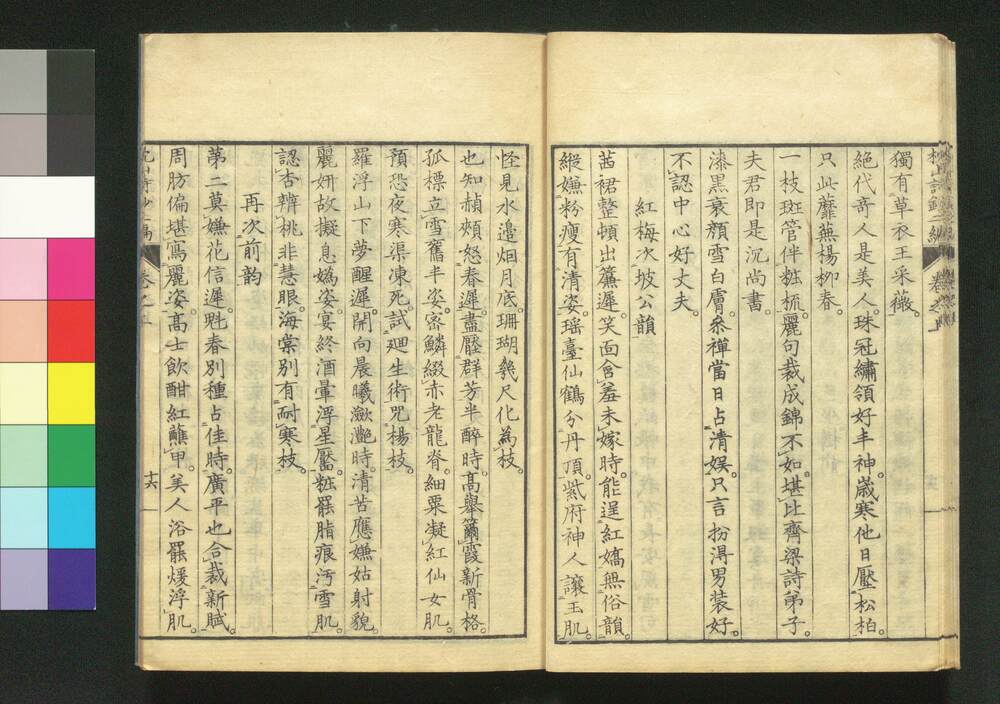 獨有草衣王采薇。
絶代奇人是美人。珠冠繡領好丰神。嵗寒他日壓松柏
只此蘼蕪楊柳春。
一枝斑管伴粧梳。麗句裁成錦不如。堪比齊梁詩弟子。
夫君即是沉尚書。
漆黒衰顔雪白膚。叅禪當日占清娯。只言扮淂男装好。
不認中心好丈夫。
紅梅次坡公韻
茜裙整頓出簾遲。笑面含羞未嫁時。能逞紅嬌無俗韻。
縦嫌粉瘦有清姿。瑶臺仙鶴分丹頂。紫府神人讓玉肌。
怪見水邉烟月底。珊瑚幾尺化為枝。
也知赬頰怒春遲。盡壓群芳半醉時。髙舉籋霞新骨格。
孤標立雪舊丰姿。宻鱗綴赤老龍脊。細粟凝紅仙女肌。
預恐夜寒渠凍死。試廻生術咒楊枝。
羅浮山下夢醒遲。開向晨曦瀲灔時。清苦應嫌姑射貌。
麗妍故擬息嬀姿。宴終酒暈浮星靨。粧罷脂痕汚雪肌。
認杏辨桃非慧眼。海棠別有耐寒枝。
再次前韵
苐二莫嫌花信遲。魁春別種占佳時。廣平也合裁新賦。
周昉偏堪寫麗姿。髙士飲酣紅蘸甲。美人浴罷煖浮肌。
卷之
十六